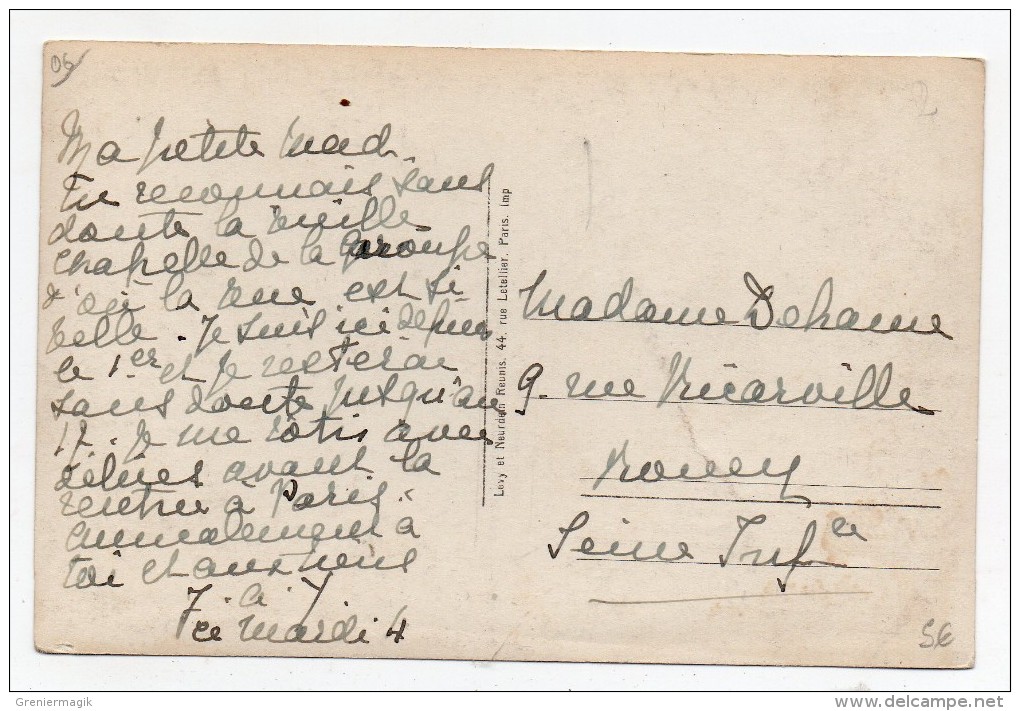 06
2
Ma petite Mad.
Tu reconnais sans
doute la vieille
chapelle de la Garoupe
d'où la vue est si
belle. Je suis ici depuis
le 1er et je resterai
sans doute jusqu'au
17. Je me rôtis avec
délices avant la
rentrée à Paris.
Amicalement à
toi et aux tiens
ce Mardi 4
Levy et Neurdein Reunis. 44, rue Letellier, Paris. Imp
Madame Dehame
9. rue Ricarville
Rouen
Seine Infre
5€
Greniermagik
http://www.delcampe.net